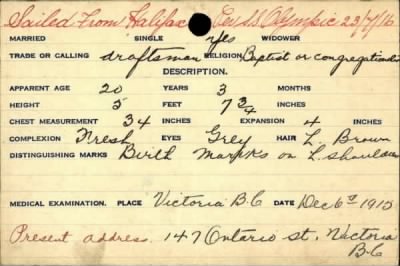 Sailed From Halifax Per SS Olympic 23/7/16
MARRIED SINGLE yes WIDOWER
TRADE OR CALLING draftsman RELIGION Baptist or congregationalist
DESCRIPTION.
APPARENT AGE 20 YEARS 3 MONTHS
HEIGHT 5 FEET 7 3/4 INCHES
CHEST MEASUREMENT 34 INCHES EXPANSION 4 INCHES
COMPLEXION Fresh EYES Grey HAIR L. Brown
DISTINGUISHING MARKS Birth Marks on L. shoulder
MEDICAL EXAMINATION. PLACE Victoria B.C DATE Dec 6th 1915
Present address. 147 Ontario st. Victoria
B.C